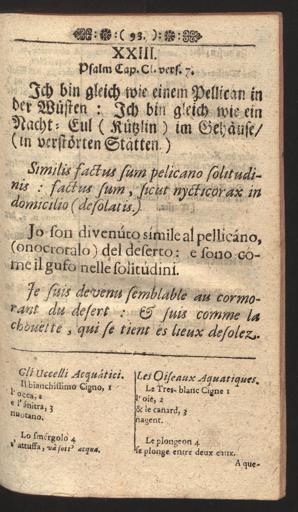 :( 93. ):
XXIII.
Psalm Cap. CI. vers. 7.
Ich bin gleich wie einem Pellican in
der Wüsten : Ich bin gleich wie ein
Nacht- Eul ( Kützlin ) im Gehäuse/
(in verstörten Stätten.)
Similis factus sum pelicano solitudi-
nis : factus sum, sicut nycticorax in
domicilio (desolatis.)
Jo son divenúto símile al pellicáno,
(onocrotalo) del deserto: e sono có-
me il gufo nelle solitudini.
Je suis devenu semblable au cormo-
rant du desert : & suis comme la
chouëtte, qui se tient és lieux desolez.
Gli Uccelli Acquátici.
Il bianchissimo Cigno, 1
l'occa, 2
e l'ánitra, 3
nuotano.
Lo smérgolo 4
s'attuffa, và sott' acqua.
Les Oiseaux Aquatiques.
Le Tres-blanc Cigne 1
l'oië, 2
& le canard, 3
nagent.
Le plongeon 4
se plonge entre deux eaux.
A que-